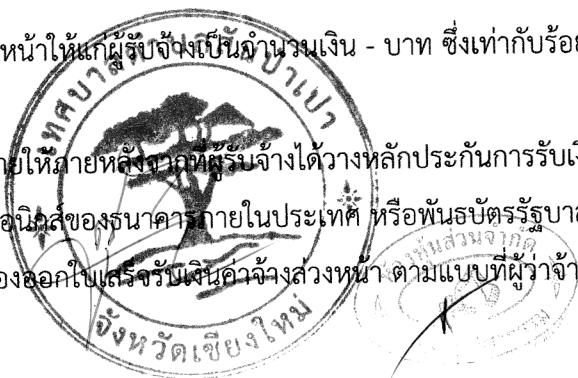 หน้าให้แก่ผู้รับจ้างเป็นจำนวนเงิน - บาท ซึ่งเท่ากับร้อย
ายให้ภายหลังจากที่ผู้รับจ้างได้วางหลักประกันการรับเงิ
อนิกส์ของธนาคารภายในประเทศ หรือพันธบัตรรัฐบาล
องออกใบเสร็จรับเงินค่าจ้างล่วงหน้า ตามแบบที่ผู้ว่าจ้า
จังหวัดเชียงใหม่
ห้างหุ้นส่วนจำกัด